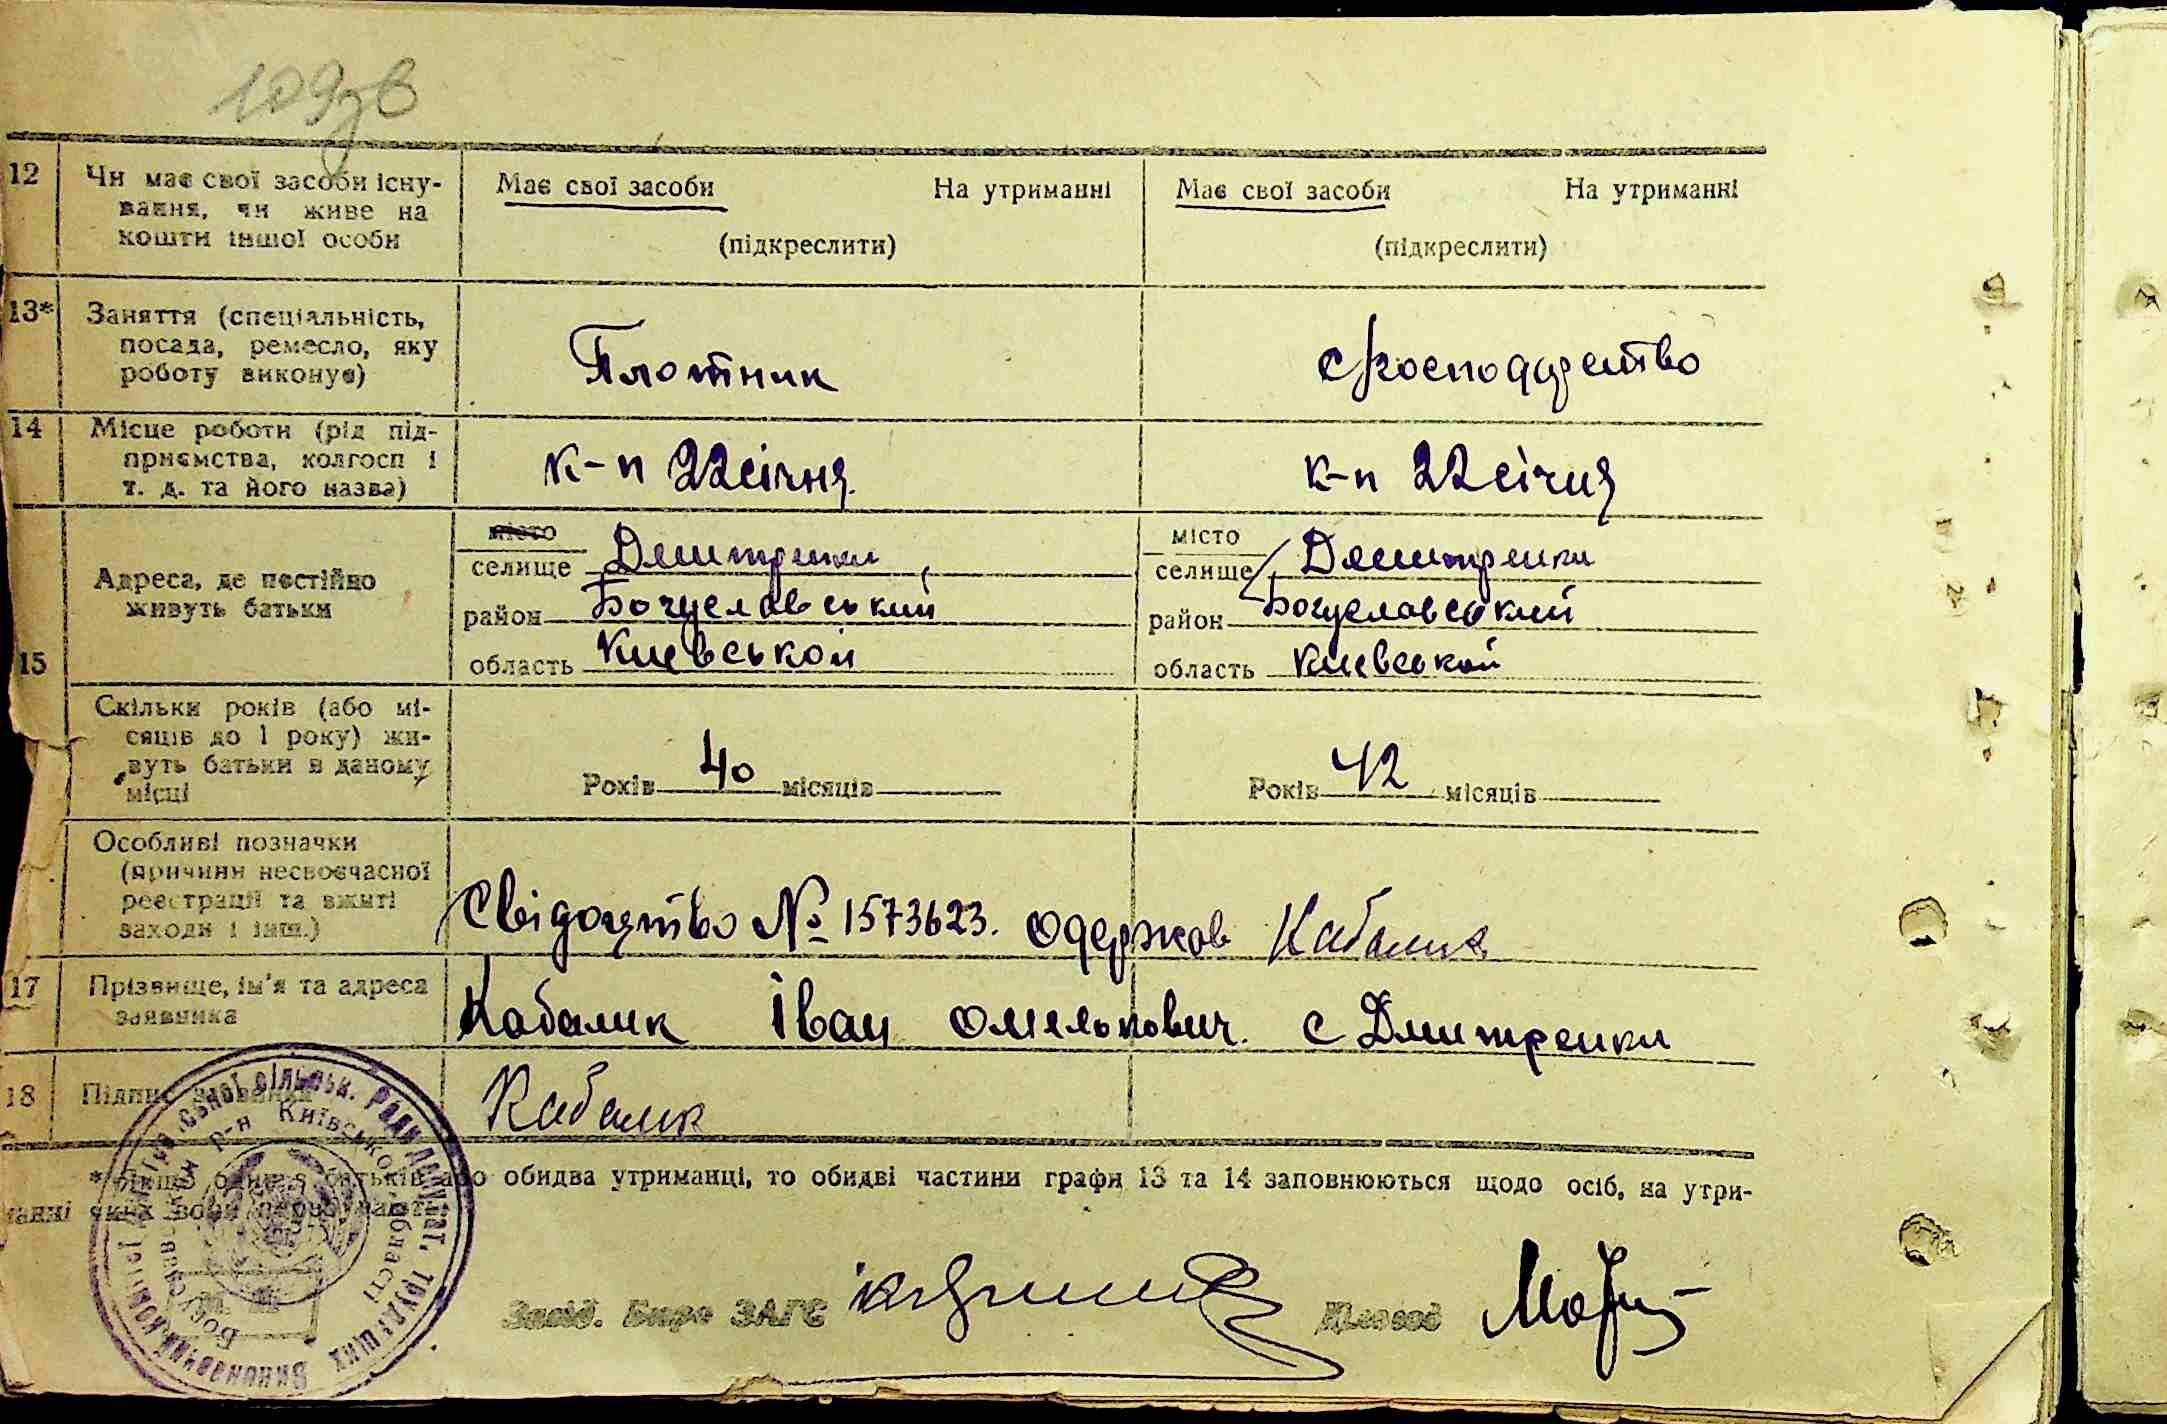 109 зв
12 Чи має свої засоби існу- Має свої засоби На утриманні Має свої засоби На утриманні
вання, чи живе на
кошти іншої особи (підкреслити) (підкреслити)
13* Заняття (спеціальність,
посада, ремесло, яку Плотник с/господарство
роботу виконує)
14 Місце роботи (рід під-
приємства, колгосп і к-п 22 січня. к-п 22 січня
т. д. та його назва)
місто місто
Адреса, де постійно селище Дмитренки, селище Дмитренки
живуть батьки район Богуславський район Богуславський
15 область Киевськой область Киевськой
Скільки років (або мі-
сяців до 1 року) жи-
вуть батьки в даному Років 40 місяців Років 42 місяців
місці
Особливі позначки
(причини несвоєчасної
реєстрації та вжиті
заходи і інш.) Свідоцтво № 1573623. одержав Кабалик
17 Прізвище, ім'я та адреса
заявника Кабалик Іван Омелькович. с Дмитренки
18 Підпис заявника Кабалик
* Якщо один з батьків або обидва утриманці, то обидві частини графи 13 та 14 заповнюються щодо осіб, на утри-
манні яких вони перебувають
Виконавчий комітет сільськ. Ради депутат. трудящих
Богуславський р-н Київської області
Завід. Бюро ЗАГС Діловод